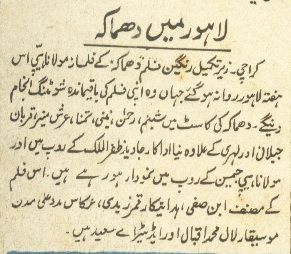 لاہور میں دھماکہ
کراچی۔ زیر تکمیل رنگین فلم دھماکہ کے فلمساز مولانا ہپی اس
ہفتہ لاہور روانہ ہو گئے جہاں وہ اپنی فلم کی باقیماندہ شوٹنگ انجام
دینگے۔ دھماکہ کی کاسٹ میں شبنم، رحمٰن، نینی، تمنا، عرش منیر، قربان
جیلانی اور لہری کے علاوہ نیا اداکار جاوید ظفر الملک کے روپ میں اور
مولانا ہپی جیمسن کے روپ میں نمودار ہو رہے ہیں۔ اس فلم
کے مصنف ابن صفی، ہدایتکار قمر زیدی، عکاس مدد علی مدن
موسیقار لال محمد اقبال اور ایڈیٹر اے سعید ہیں۔